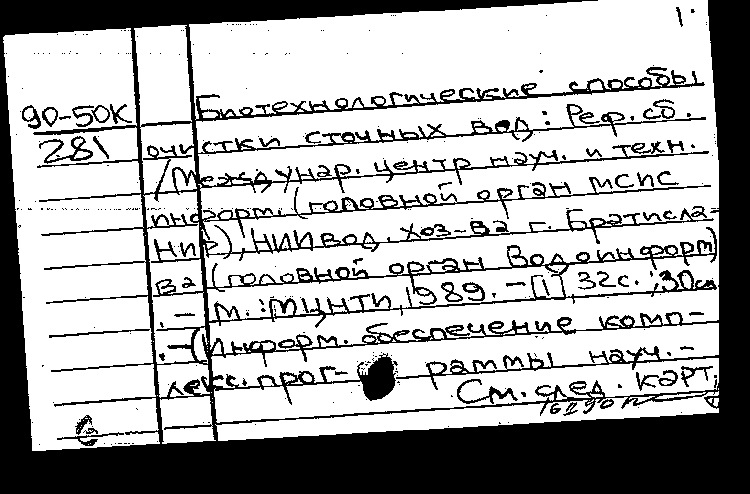 1.
90-50К Биотехнологические способы
281 очистки сточных вод: Реф. сб.
/Междунар. центр науч. и техн.
информ. (головной орган МСИС
НИР), НИИ вод. хоз-ва г. Братисла-
ва (головной орган Водоинформ)
.- М.: МЦНТИ, 1989. - [1], 32с. ; 30см
.-(Информ. обеспечение комп-
лекс. прог- раммы науч. -
См. след. карт.